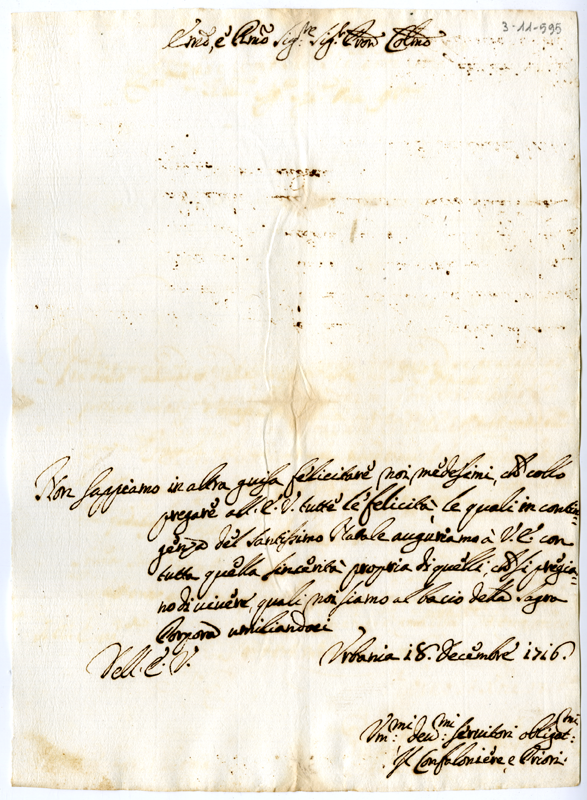 3-11-595
Em̃o, e Rm̃o Sig.re Sig.r Pron Colm̃o
Non sappiamo in altra guisa felicitare noi medesimi, che collo
pregare all' E. V. tutte le felicità, le quali in contin¬
genza del Santissimo Natale auguriamo à V. E. con
tutta quella sincerità propria di quelli che si pregia¬
no di vivere, quali noi siamo al bacio della Sagra
Porpora umiliandoci
Dell' E. V.
Urbania 18. Decembre 1716.
Vm.mi deu.mi servitori obligat.mi
Il Confaloniere, e Priori